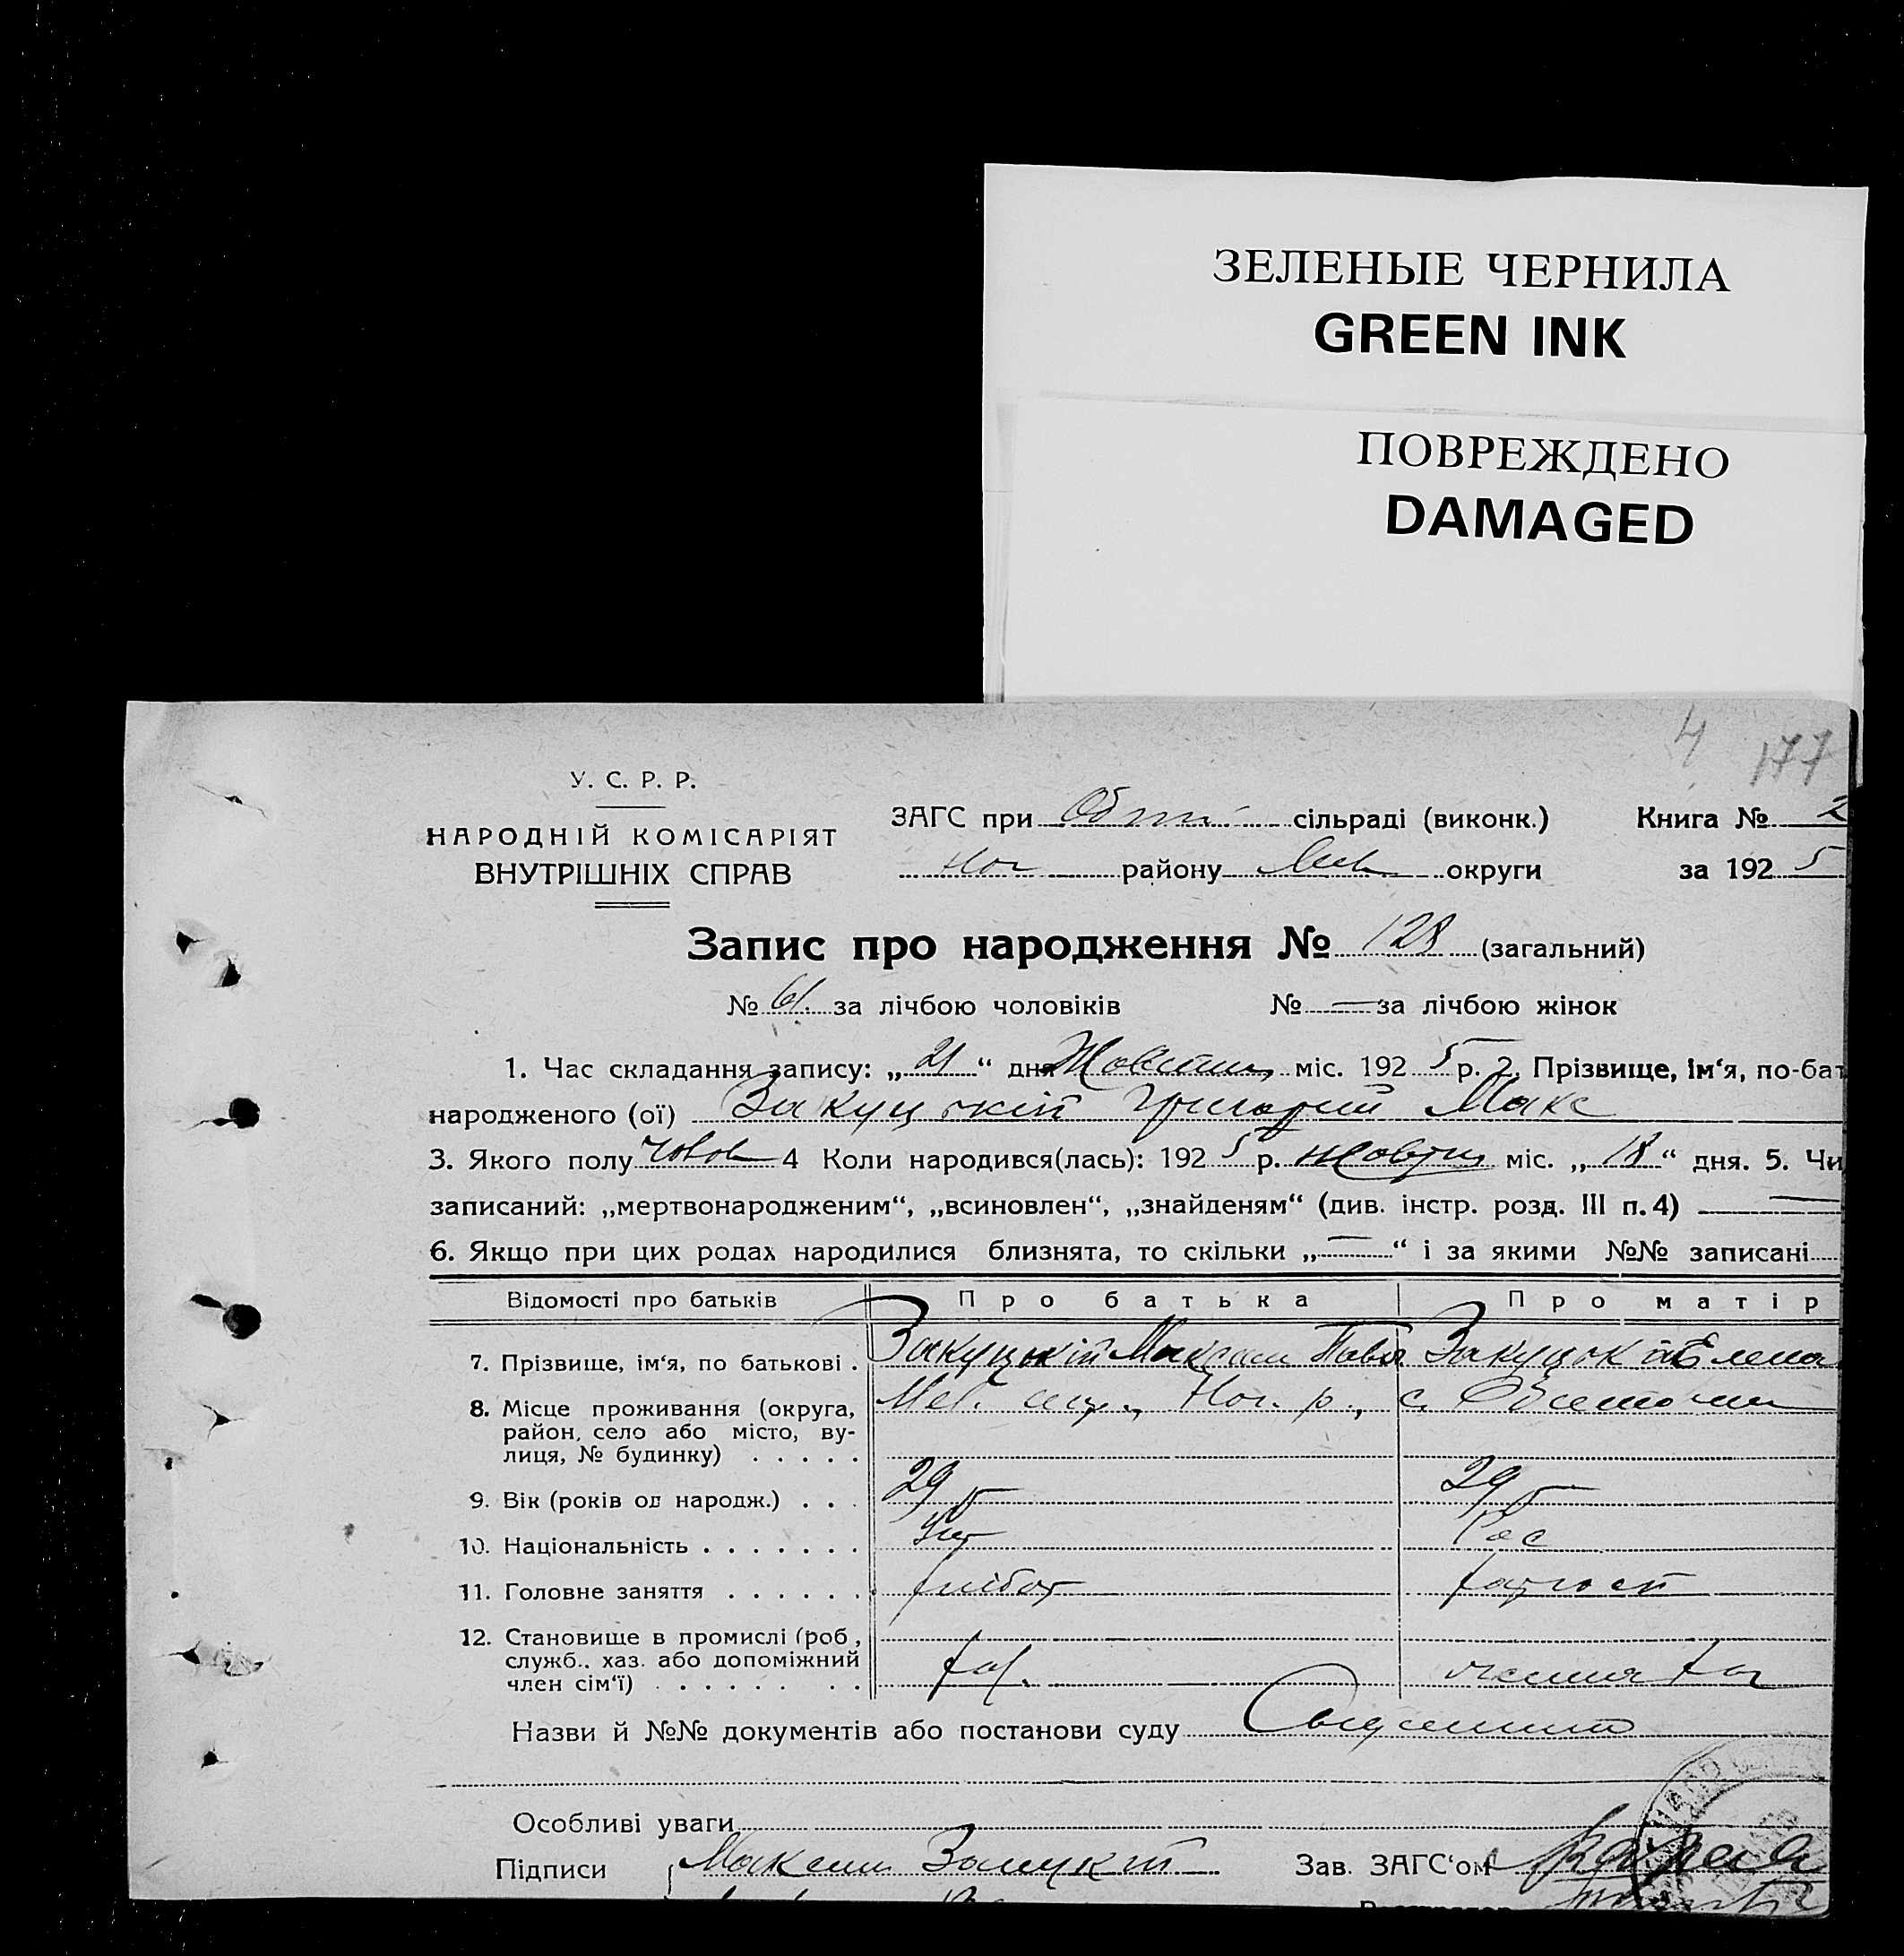 ЗЕЛЕНЫЕ ЧЕРНИЛА
GREEN INK
ПОВРЕЖДЕНО
DAMAGED
4 177
У. С. Р. Р.
НАРОДНІЙ КОМІСАРІЯТ
ВНУТРІШНІХ СПРАВ
ЗАГС при сільраді (виконк.) Книга № 2
Ног району округи за 1925
Запис про народження № 128 (загальний)
№ 61. за лічбою чоловіків № — за лічбою жінок
1. Час складання запису: „21“ дня міс. 1925 р. 2. Прізвище, ім‘я, по-бат
народженого (ої) Закуцький Григорий Макс
3. Якого полу Чолов 4 Коли народився(лась): 1925 р. міс. „18“ дня. 5. Чи
записаний: „мертвонародженим“, „всиновлен“, „знайденям“ (див. інстр. розд. III п. 4) —
6. Якщо при цих родах народилися близнята, то скільки „—“ і за якими №№ записані
Відомості про батьків Про батька Про матір
7. Прізвище, ім‘я, по батькові . Закуцький Максим Павл Закуцька Елена
8. Місце проживання (округа, Мел. окр., Ног. р., с. Обиточни
район, село або місто, ву-
лиця, № будинку) . . . . .
9. Вік (років од народж.) . . . 29 29
10. Національність . . . . . . . Укр Рос
11. Головне заняття . . . . . . хлібор
12. Становище в промислі (роб,
служб., хаз. або допоміжний
член сім‘ї) . . . . . . . . хаз.
Назви й №№ документів або постанови суду
Особливі уваги
Підписи Максим Закуцкий Зав. ЗАГС‘ом